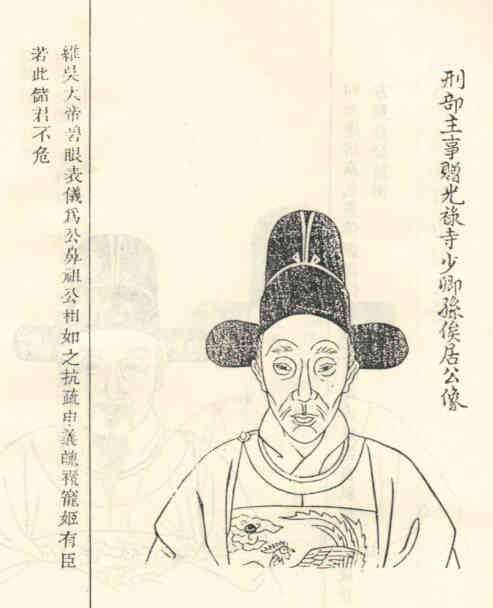 刑部主事贈光祿寺少卿孫俟居公像
維吳大帝碧眼表儀爲公鼻祖公相如之抗疏申義魄褫寵姬有臣
若此儲君不危